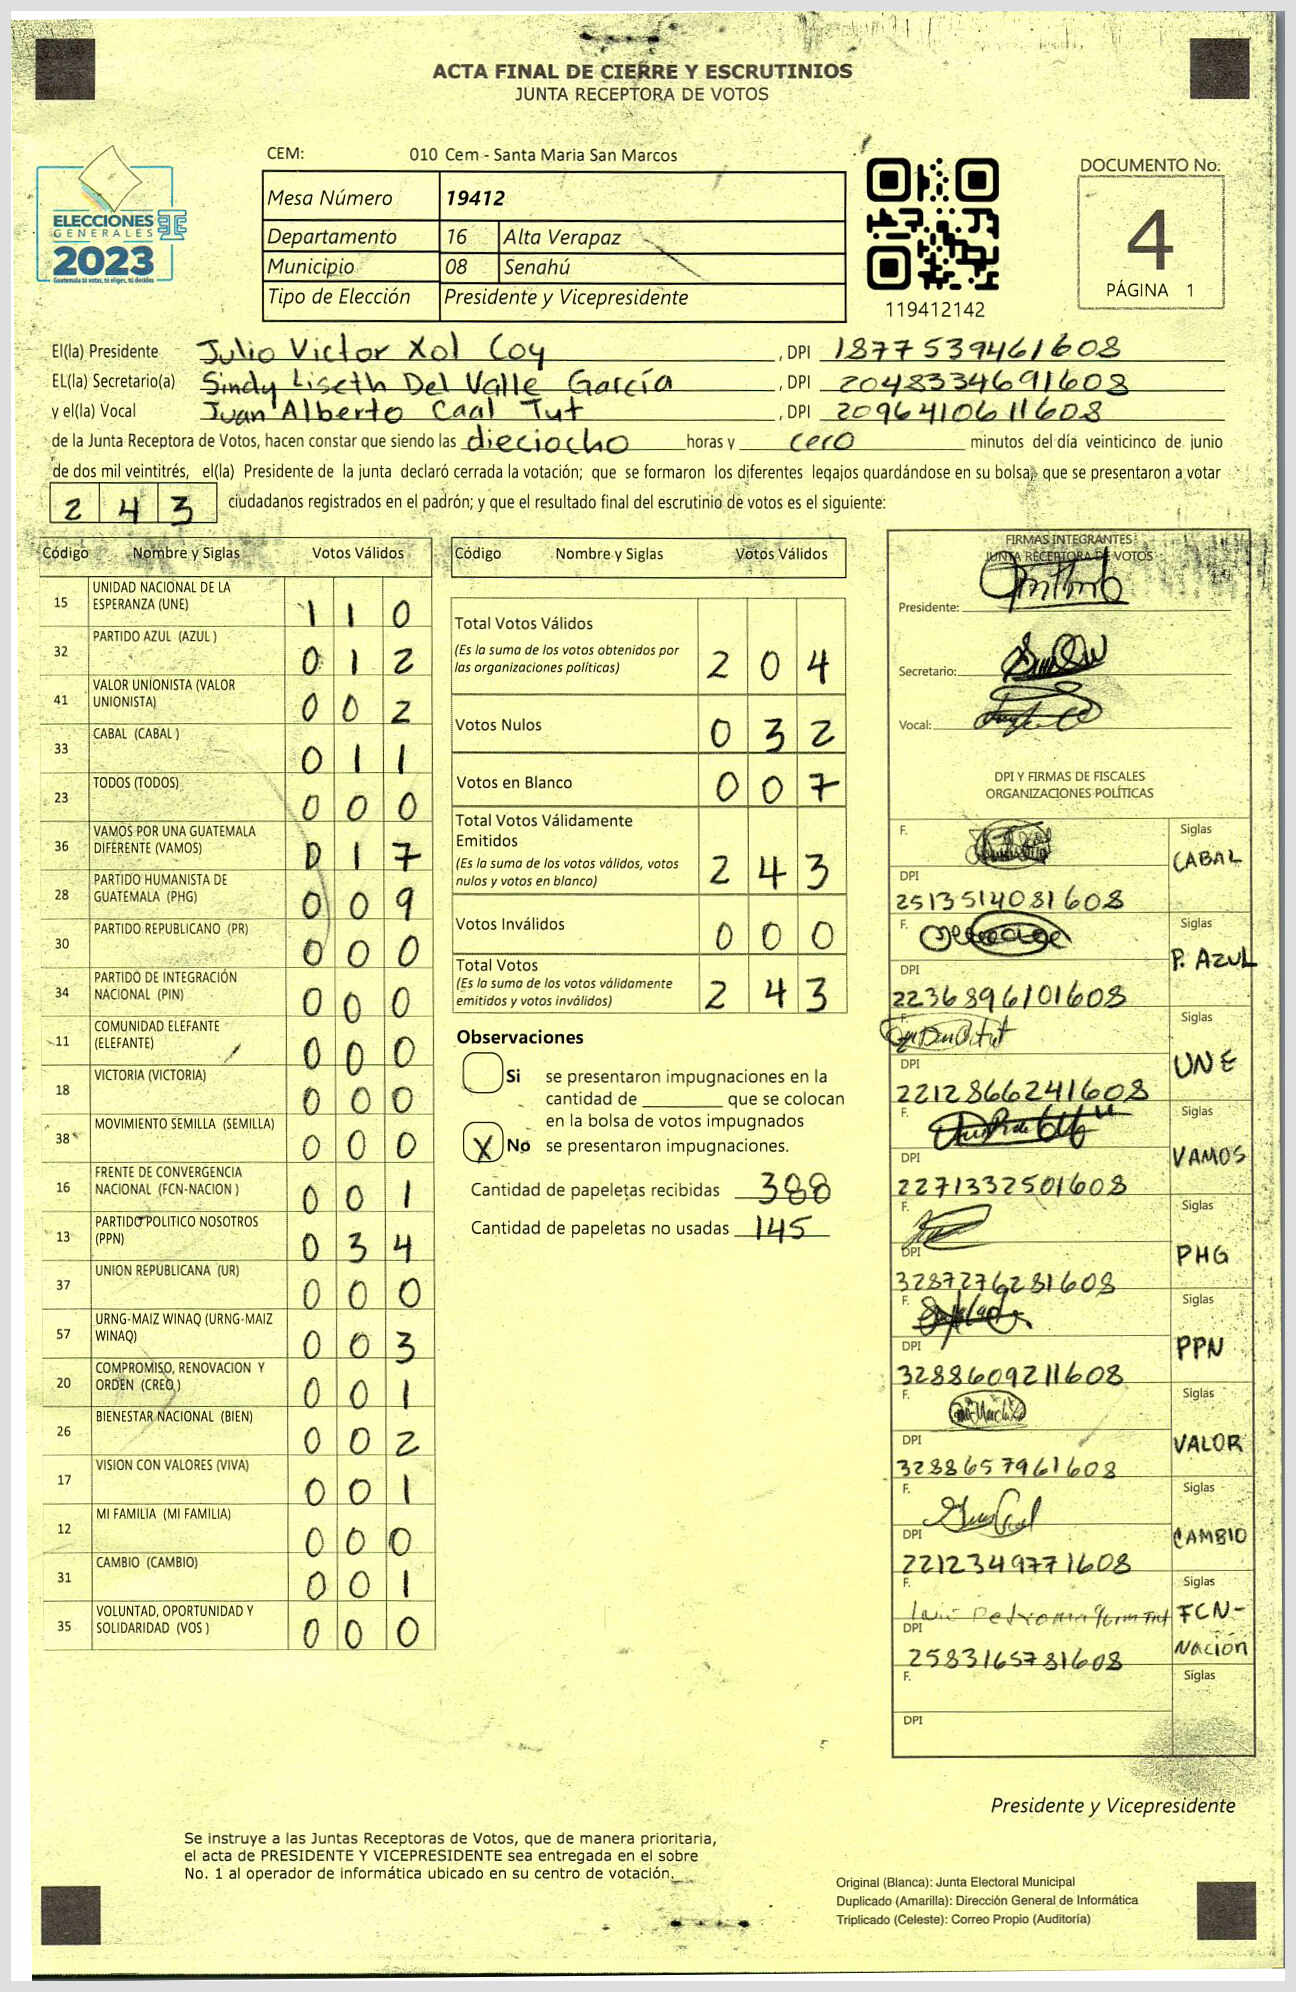 ACTA FINAL DE CIERRE Y ESCRUTINIOS
JUNTA RECEPTORA DE VOTOS
ELECCIONES
GENERALES
2023
Guatemala tú votas, tú eliges, tú decides
CEM: 010 Cem - Santa Maria San Marcos
Mesa Número 19412
Departamento 16 Alta Verapaz
Municipio 08 Senahú
Tipo de Elección Presidente y Vicepresidente
119412142
DOCUMENTO No.
4
PÁGINA 1
El(la) Presidente Julio Victor Xol Coy , DPI 1877539461608
EL(la) Secretario(a) Sindy Liseth Del Valle García , DPI 2048334691608
y el(la) Vocal Juan Alberto Caal Tut , DPI 2096410611608
de la Junta Receptora de Votos, hacen constar que siendo las dieciocho horas y cero minutos del día veinticinco de junio
de dos mil veintitrés, el(la) Presidente de la junta declaró cerrada la votación; que se formaron los diferentes legajos quardándose en su bolsa, que se presentaron a votar
2 4 3 ciudadanos registrados en el padrón; y que el resultado final del escrutinio de votos es el siguiente:
Código Nombre y Siglas Votos Válidos
15 UNIDAD NACIONAL DE LA ESPERANZA (UNE) 1 1 0
32 PARTIDO AZUL (AZUL ) 0 1 2
41 VALOR UNIONISTA (VALOR UNIONISTA) 0 0 2
33 CABAL (CABAL ) 0 1 1
23 TODOS (TODOS) 0 0 0
36 VAMOS POR UNA GUATEMALA DIFERENTE (VAMOS) 0 1 7
28 PARTIDO HUMANISTA DE GUATEMALA (PHG) 0 0 9
30 PARTIDO REPUBLICANO (PR) 0 0 0
34 PARTIDO DE INTEGRACIÓN NACIONAL (PIN) 0 0 0
11 COMUNIDAD ELEFANTE (ELEFANTE) 0 0 0
18 VICTORIA (VICTORIA) 0 0 0
38 MOVIMIENTO SEMILLA (SEMILLA) 0 0 0
16 FRENTE DE CONVERGENCIA NACIONAL (FCN-NACION ) 0 0 1
13 PARTIDO POLITICO NOSOTROS (PPN) 0 3 4
37 UNION REPUBLICANA (UR) 0 0 0
57 URNG-MAIZ WINAQ (URNG-MAIZ WINAQ) 0 0 3
20 COMPROMISO, RENOVACION Y ORDEN (CREO ) 0 0 1
26 BIENESTAR NACIONAL (BIEN) 0 0 2
17 VISION CON VALORES (VIVA) 0 0 1
12 MI FAMILIA (MI FAMILIA) 0 0 0
31 CAMBIO (CAMBIO) 0 0 1
35 VOLUNTAD, OPORTUNIDAD Y SOLIDARIDAD (VOS ) 0 0 0
Código Nombre y Siglas Votos Válidos
Total Votos Válidos
(Es la suma de los votos obtenidos por
las organizaciones políticas) 2 0 4
Votos Nulos 0 3 2
Votos en Blanco 0 0 7
Total Votos Válidamente
Emitidos
(Es la suma de los votos válidos, votos
nulos y votos en blanco) 2 4 3
Votos Inválidos 0 0 0
Total Votos
(Es la suma de los votos válidamente
emitidos y votos inválidos) 2 4 3
Observaciones
Si se presentaron impugnaciones en la
cantidad de ________ que se colocan
en la bolsa de votos impugnados
X No se presentaron impugnaciones.
Cantidad de papeletas recibidas 388
Cantidad de papeletas no usadas 145
FIRMAS INTEGRANTES
JUNTA RECEPTORA DE VOTOS
Presidente:
Secretario:
Vocal:
DPI Y FIRMAS DE FISCALES
ORGANIZACIONES POLÍTICAS
F. Siglas
CABAL
DPI
2513514081608
F. Siglas
P. AZUL
DPI
2236896101608
F. Siglas
UNE
DPI
2212866241608
F. Siglas
VAMOS
DPI
2271332501608
F. Siglas
PHG
DPI
3287276281608
F. Siglas
PPN
DPI
3288609211608
F. Siglas
VALOR
DPI
3288657961608
F. Siglas
CAMBIO
DPI
2212349771608
F. Siglas
FCN-
DPI
Nación
2583165781608
F. Siglas
DPI
Presidente y Vicepresidente
Se instruye a las Juntas Receptoras de Votos, que de manera prioritaria,
el acta de PRESIDENTE Y VICEPRESIDENTE sea entregada en el sobre
No. 1 al operador de informática ubicado en su centro de votación.
Original (Blanca): Junta Electoral Municipal
Duplicado (Amarilla): Dirección General de Informática
Triplicado (Celeste): Correo Propio (Auditoría)